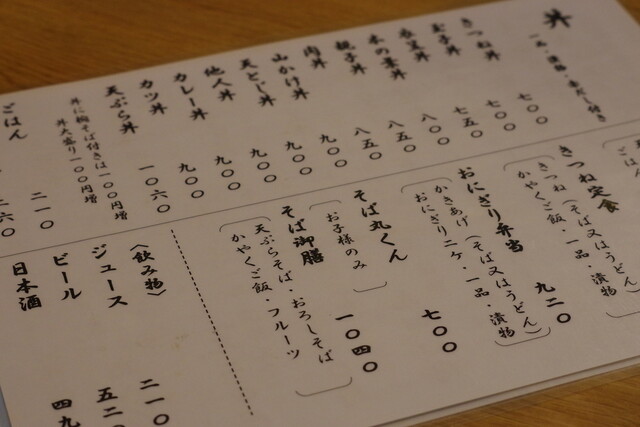 丼
一品・漬物・赤だし付き
きつね丼 七〇〇
玉子丼 七〇〇
丼 七五〇
木の葉丼 八〇〇
親子丼 八五〇
肉丼 八五〇
山かけ丼 九〇〇
天とじ丼 九〇〇
他人丼 九〇〇
カレー丼 九〇〇
カツ丼 九〇〇
天ぷら丼
丼に椀そば付きは一〇〇円増
丼大盛り一〇〇円増
ごはん 二一〇
二六〇
ごはん
・漬物
きつね定食 九二〇
きつね（そば又はうどん）
かやくご飯・一品・漬物
おにぎり弁当 七〇〇
かきあげ（そば又はうどん）
おにぎり二ケ・一品・漬物
そば丸くん
お子様のみ
そば御膳 一〇四〇
天ぷらそば・おろしそば
かやくご飯・フルーツ
〈飲み物〉
ジュース 二一〇
ビール 五二
日本酒 四九